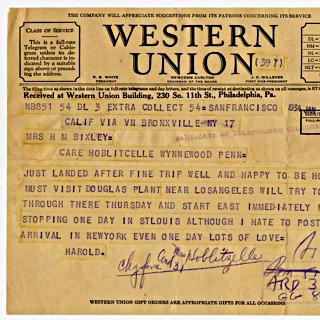 THE COMPANY WILL APPRECIATE SUGGESTIONS FROM ITS PATRONS CONCERNING ITS SERVICE
CLASS OF SERVICE
This is a full-rate Telegram or Cablegram unless its deferred character is indicated by a suitable sign above or preceding the address.
WESTERN UNION
(39 Y)
R. B. WHITE
PRESIDENT
NEWCOMB CARLTON
CHAIRMAN OF THE BOARD
J. C. WILLEVER
FIRST VICE-PRESIDENT
The filing time as shown in the date line on full-rate telegrams and day letters, and the time of receipt at destination as shown on all
Received at Western Union Building, 230 So. 11th St., Philadelphia, Pa.
NB851 54 DL 3 EXTRA COLLECT 54= SANFRANCISCO
1934 JAN
CALIF VIA VN BRONXVILLE NY 17
MRS H M BIXLEY=
CARE HOBLITCELLE WYNNEWOOD PENN=
JUST LANDED AFTER FINE TRIP WELL AND HAPPY TO BE HO
MUST VISIT DOUGLAS PLANT NEAR LOSANGELES WILL TRY TO
THROUGH THERE THURSDAY AND START EAST IMMEDIATELY
STOPPING ONE DAY IN STLOUIS ALTHOUGH I HATE TO POST
ARRIVAL IN NEWYORK EVEN ONE DAY LOTS OF LOVE=
HAROLD.
Mrs Hoblitzelle
WESTERN UNION GIFT ORDERS ARE APPROPRIATE GIFTS FOR ALL OCCASIONS